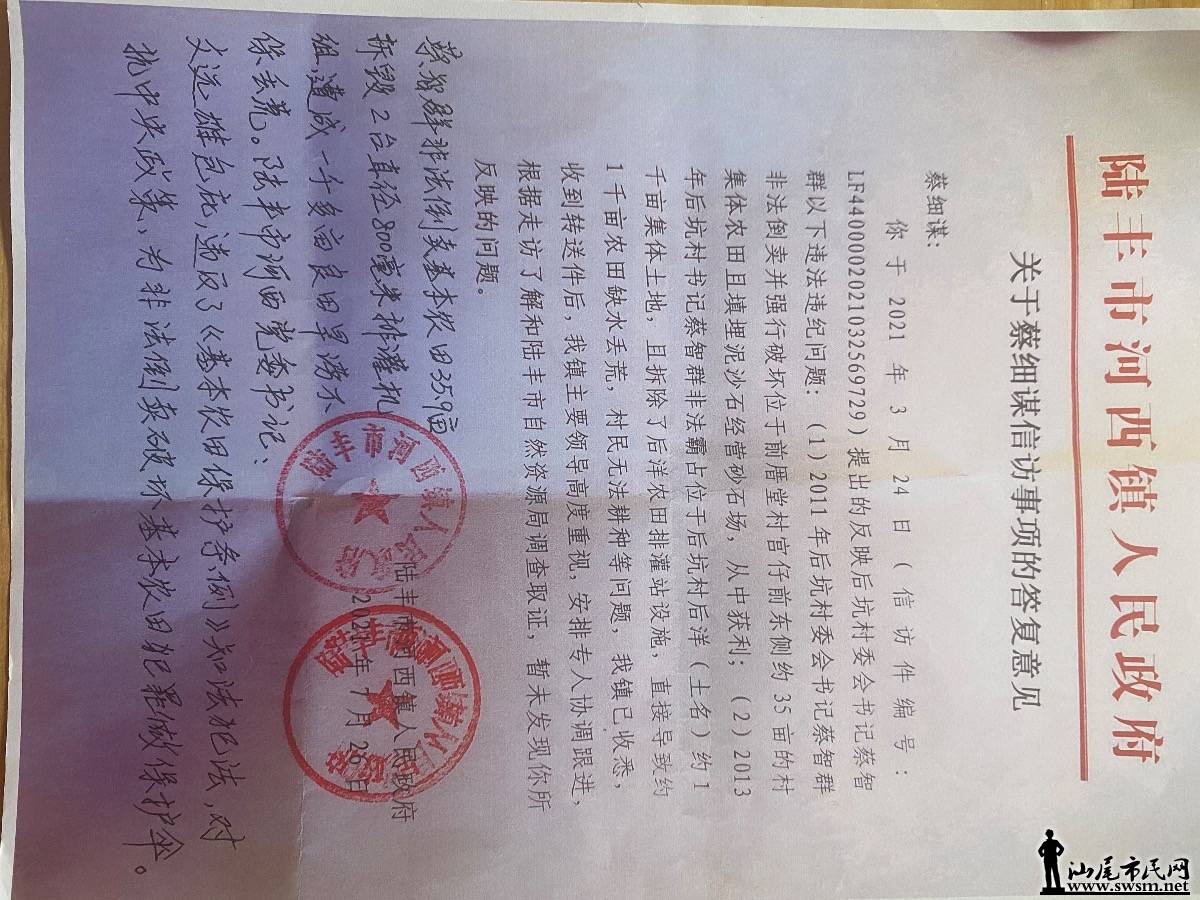 陆丰市河西镇人民政府
关于蔡细谋信访事项的答复意见
蔡细谋:
你于2021年3月24日(信访件编号:
LF4400002021032569729)提出的反映后坑村委会书记蔡智
群以下违法违纪问题:(1)2011年后坑村委会书记蔡智群
非法倒卖并强行破坏位于前厝堂村宫仔前东侧约35亩的村
集体农田且填埋泥沙石经营砂石场,从中获利;(2)2013
年后坑村书记蔡智群非法霸占位于后坑村后洋(土名)约1
千亩集体土地,且拆除了后洋农田排灌站设施,直接导致约
1千亩农田缺水丢荒,村民无法耕种等问题,我镇已收悉,
收到转送件后,我镇主要领导高度重视,安排专人协调跟进,
根据走访了解和陆丰市自然资源局调查取证,暂未发现你所
反映的问题。
陆丰市河西镇人民政府
2021年7月26日
蔡智群非法倒卖基本农田35.9亩
拆毁2台直径800毫米排灌机
组,遭成一千多亩良田旱涝不
保丢荒。陆丰市河西党委书记:
文远雄包庇,违反了《基本农田保护条例》知法犯法,对
抗中央政策,为非法倒卖破坏基本农田犯罪做保护伞。
陆丰市河西镇人民政府
汕尾市民网
www.swsm.net